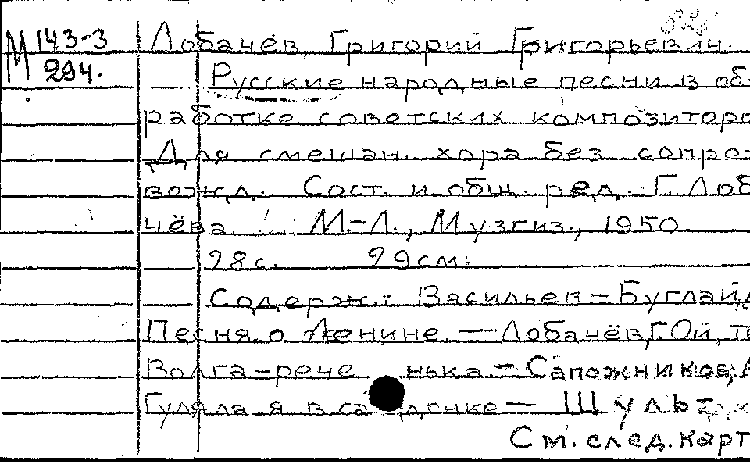 М 143-3 Лобачёв Григорий Григорьевич.
294. Русские народные песни в об
работке советских композиторо
Для смешан. хора без сопро
вожд. Сост. и общ. ред. Г. Лоб
чёва. М-Л., Музгиз, 1950
28с. 29см.
Содерж.: Васильев-Буглай,
Песня о Ленине. — Лобачёв, Г. Ой, т
Волга-рече нька - Сапожников, А
Гуляла я в садочке — Шульг
См. след. карт